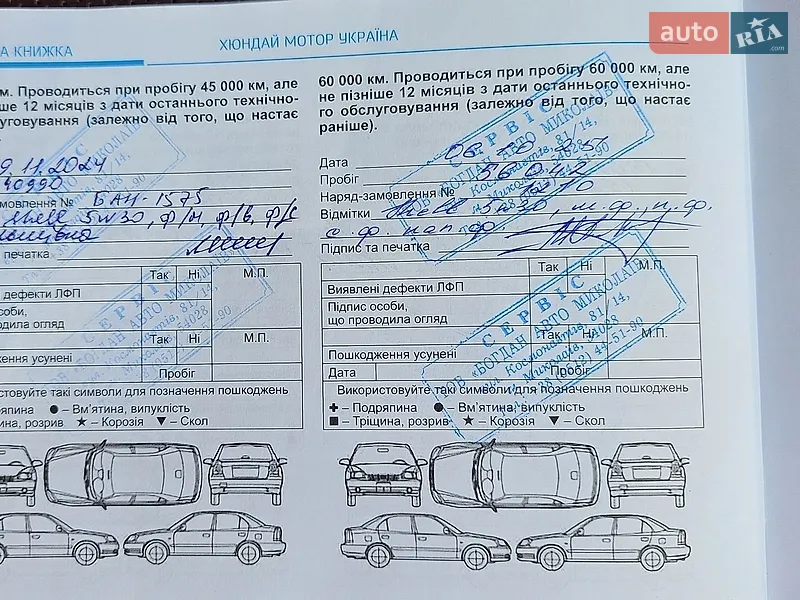 А КНИЖКА
ХЮНДАЙ МОТОР УКРАЇНА
auto RIA.com
м. Проводиться при пробігу 45 000 км, але
ніше 12 місяців з дати останнього технічно-
уговування (залежно від того, що настає
9.11.2024
40990
мовлення № БАН-1575
5W30, ф/м, ф/в, ф/с
печатка
Так Ні М.П.
дефекти ЛФП
соби,
одила огляд
Так Ні М.П.
ження усунені
Пробіг
стовуйте такі символи для позначення пошкоджень
дряпина ● – Вм’ятина, випуклість
ина, розрив ★ – Корозія ▼ – Скол
60 000 км. Проводиться при пробігу 60 000 км, але
не пізніше 12 місяців з дати останнього технічно-
го обслуговування (залежно від того, що настає
раніше).
Дата
Пробіг 56042
Наряд-замовлення №
Відмітки 5w30, м.ф., п.ф.
с.ф.
Підпис та печатка
Так Ні М.П.
Виявлені дефекти ЛФП
Підпис особи,
що проводила огляд
Так Ні М.П.
Пошкодження усунені
Дата Пробіг
Використовуйте такі символи для позначення пошкоджень
✚ – Подряпина ● – Вм’ятина, випуклість
■ – Тріщина, розрив ★ – Корозія ▼ – Скол
СЕРВІС
ТОВ «БОГДАН АВТО МИКОЛАЇВ»
Космонавтів, 81/14,
м. Миколаїв, 54028